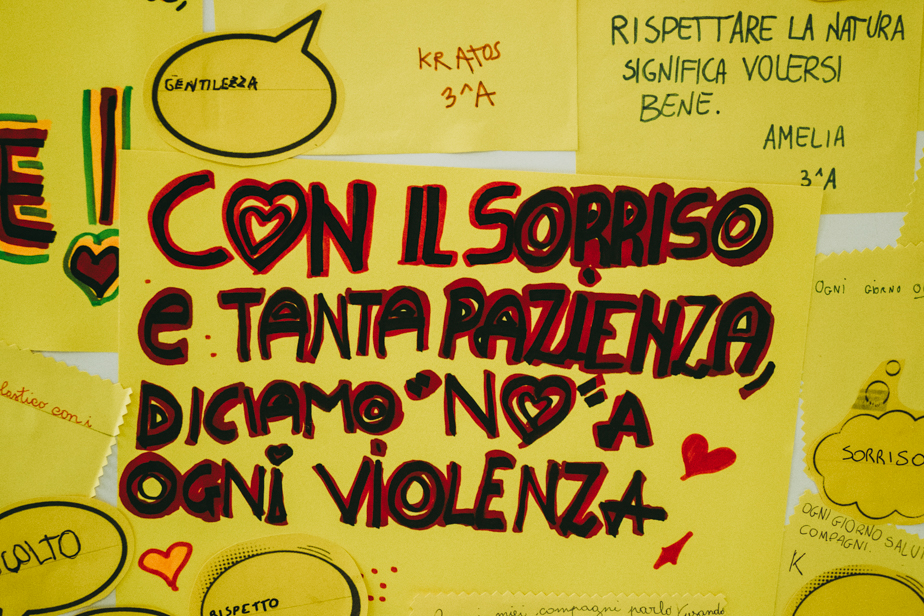 GENTILEZZA
KRATOS
3^A
RISPETTARE LA NATURA
SIGNIFICA VOLERSI
BENE.
AMELIA
3^A
E!
CON IL SORRISO
e TANTA PAZIENZA,
DICIAMO "NO" A
OGNI VIOLENZA
OGNI GIORNO
SORRISO
OGNI GIORNO SALU
COMPAGNI.
K
lastico con i
COLTO
RISPETTO
miei compagni parlo usando